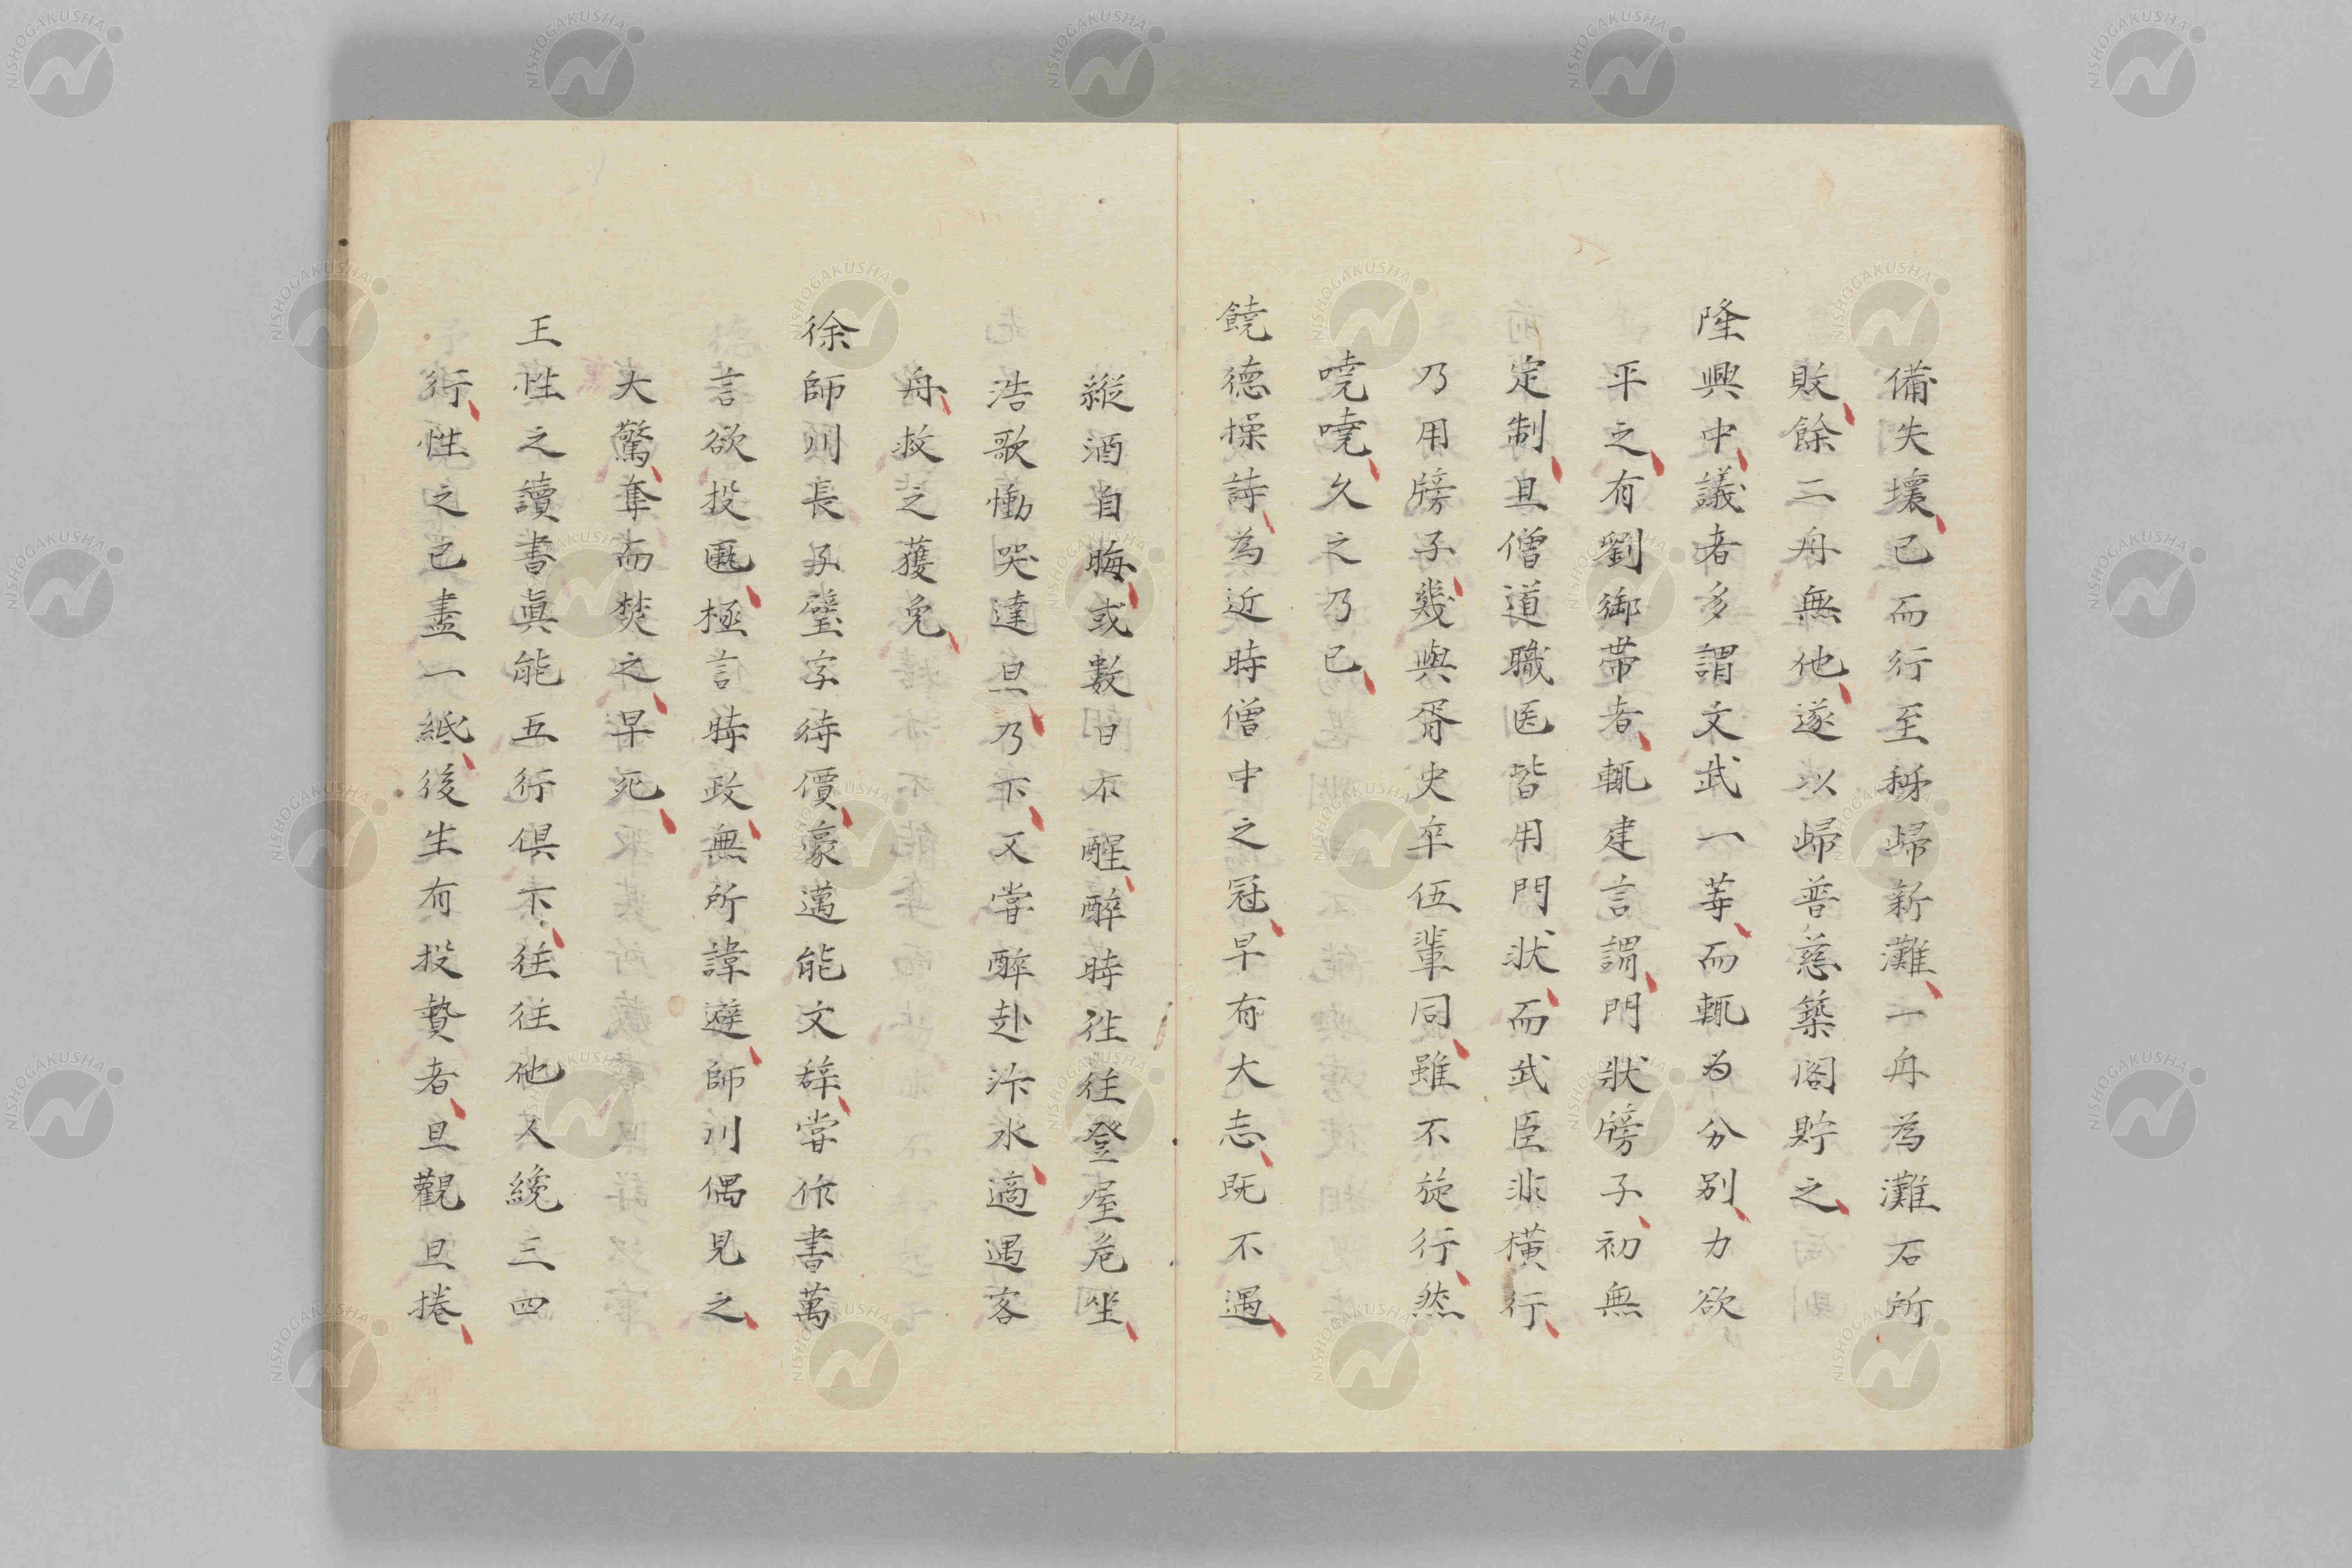 備失壞已而行至秭歸新灘一舟為灘石所
敗餘二舟無他遂以歸普慈築閣貯之
隆興中議者多謂文武一等而輒為分別力欲
平之有劉御帶者輒建言謂門狀牓子初無
定制且僧道職医皆用門狀而武臣非橫行
乃用牓子幾與胥史卒伍輩同雖不旋行然
嘵嘵久之乃已
饒德操詩為近時僧中之冠早有大志既不遇
縱酒自晦或數日不醒醉時往往登屋危坐
浩歌慟哭達旦乃下又嘗醉赴汴水適遇客
舟救之獲免
徐師川長子璧字待價豪邁能文辞嘗作書萬
言欲投匭極言時政無所諱避師川偶見之
大驚奪而焚之早死
王性之讀書真能五行俱下往往他人纔三四
行性之已盡一紙後生有投贄者且觀且捲
NISHOGAKUSHA